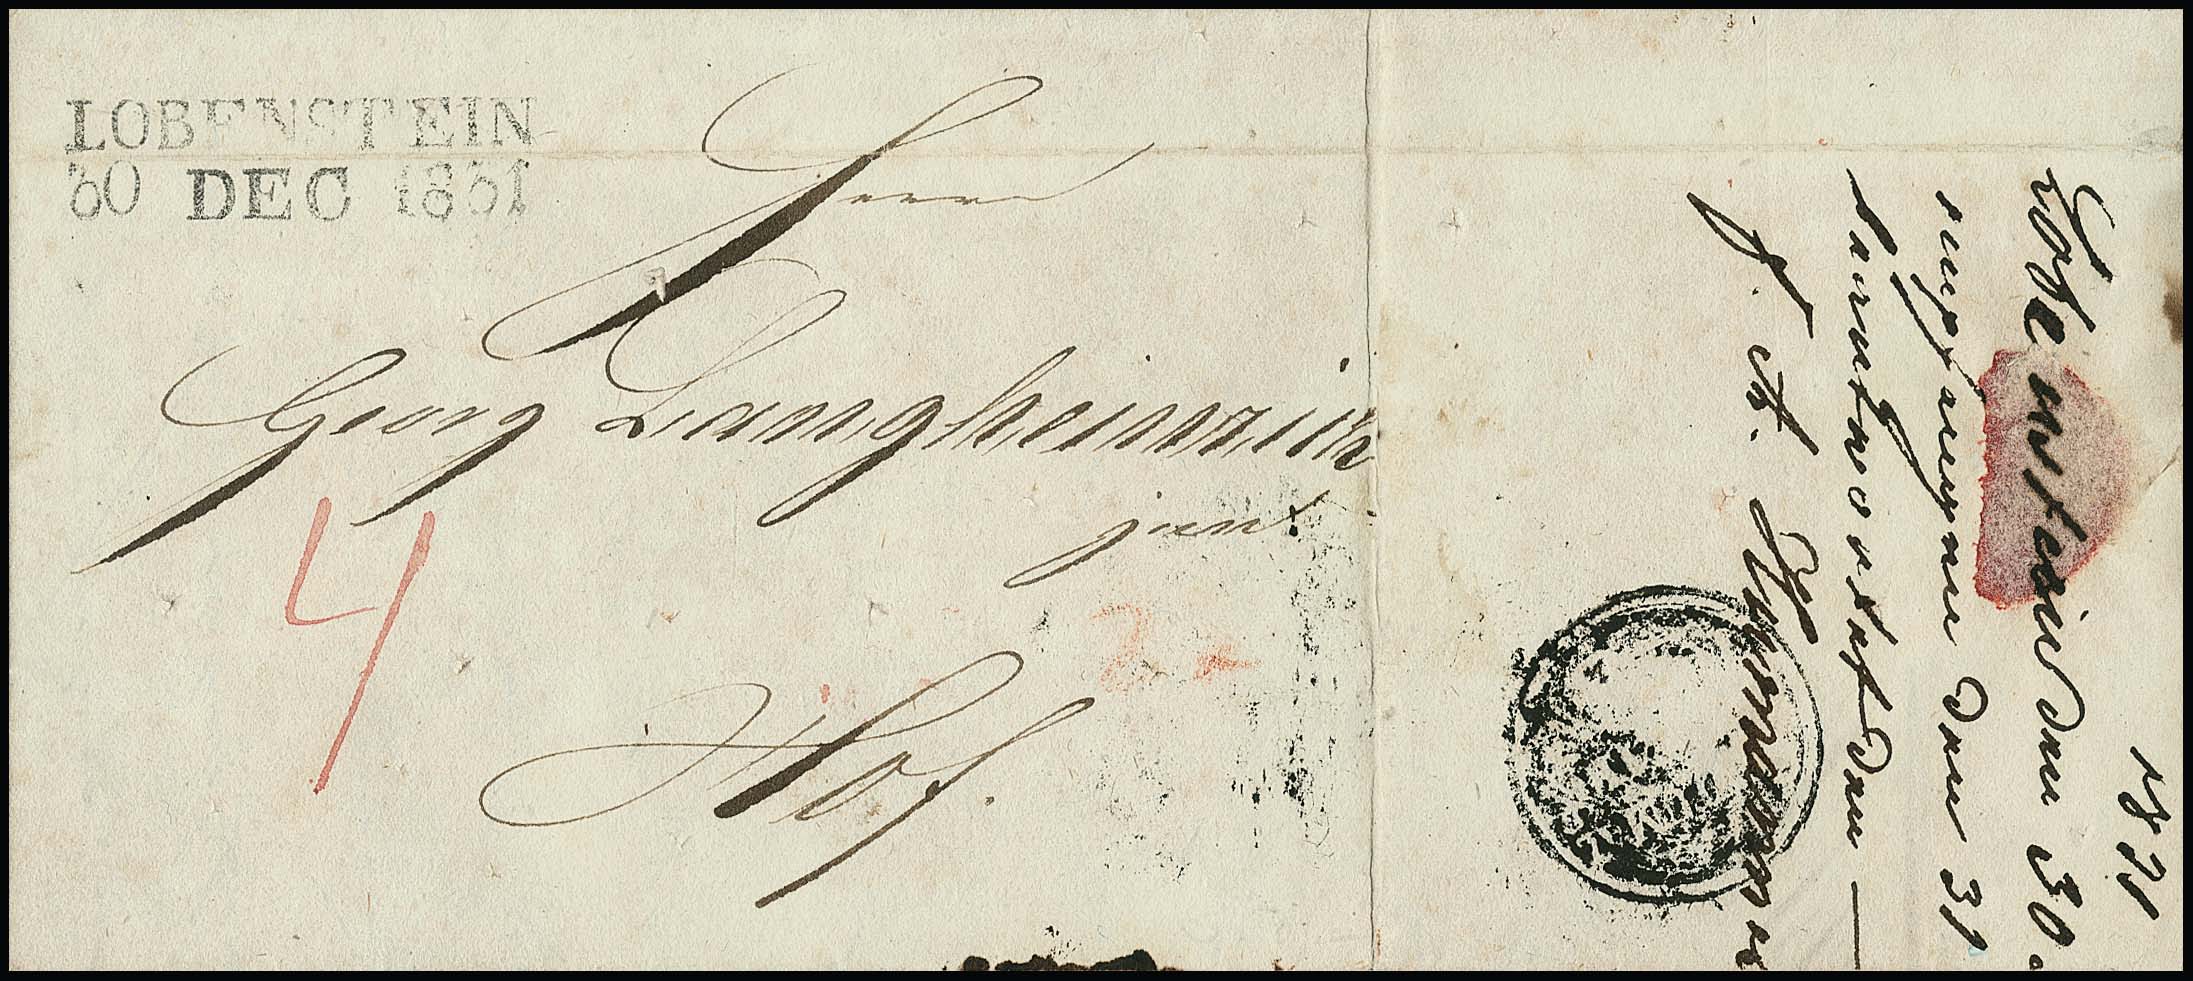 LOBENSTEIN
30 DEC 1831
Herrn
Georg Langheinrich
jun.
Hof.
4
1831
Lobenstein den 30.
empfangen den 31
beantwortet den —
J. A.